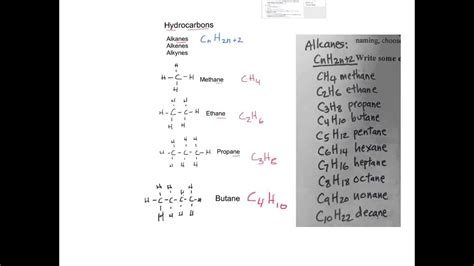 Hydrocarbons
Alkanes CnH2n+2
Alkenes
Alkynes
H
H-C-H
H
Methane CH4
H H
H-C-C-H
H H
Ethane C2H6
H H H
H-C-C-C-H
H H H
Propane C3H8
H H H H
H-C-C-C-C-H
H H H H
Butane C4H10
Alkanes:
naming, choose
CnH2n+2 Write some e
CH4 methane
C2H6 ethane
C3H8 propane
C4H10 butane
C5H12 pentane
C6H14 hexane
C7H16 heptane
C8H18 octane
C9H20 nonane
C10H22 decane